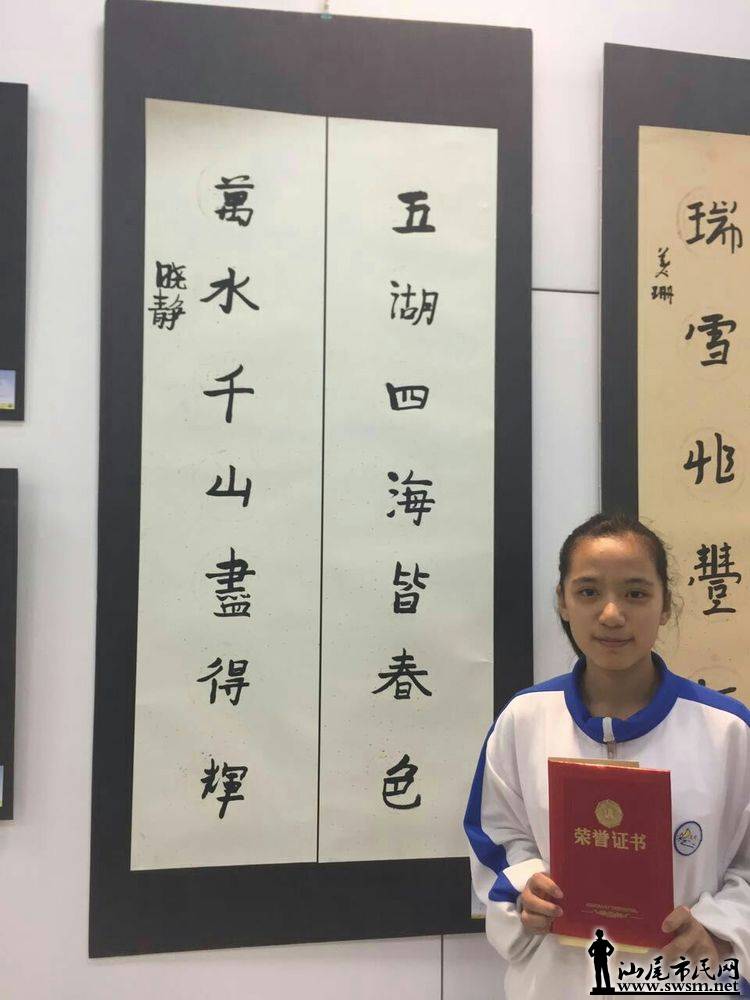 五湖四海皆春色
萬水千山盡得輝
晓静
瑞雪兆豐
美珊
荣誉证书
汕尾市民网
www.swsm.net